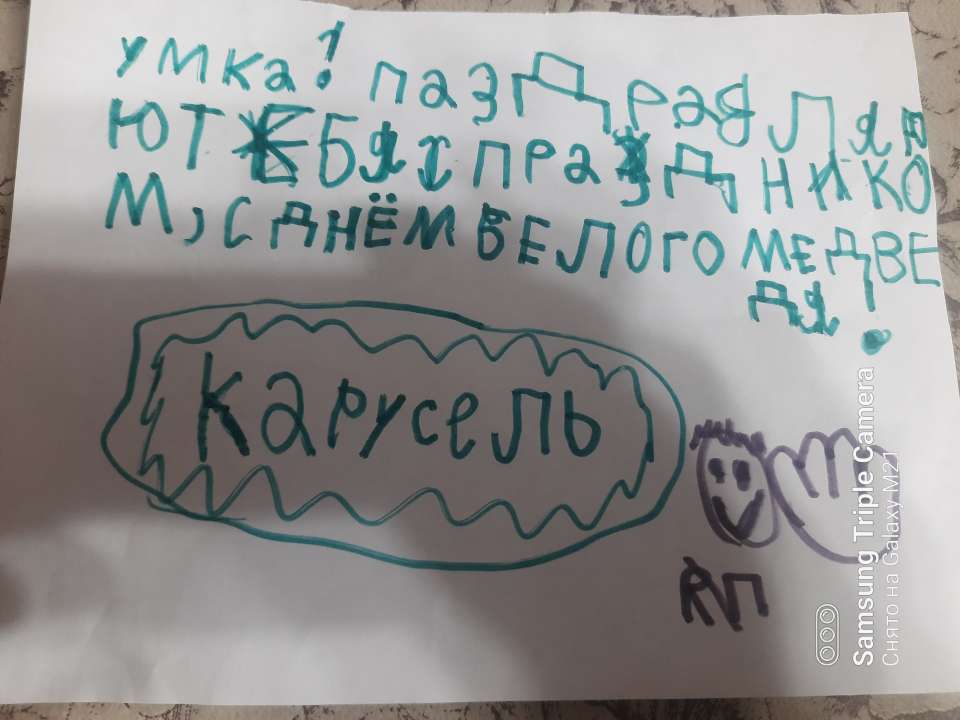 УМКА! ПАЗДРАВЛЯЕ
ЮТ БЯ С ПРАЗДНИКО
М, С ДНЁМ БЕЛОГО МЕДВЕ
ДЯ!
Карусель
RИП
Samsung Triple Camera
Снято на Galaxy M21